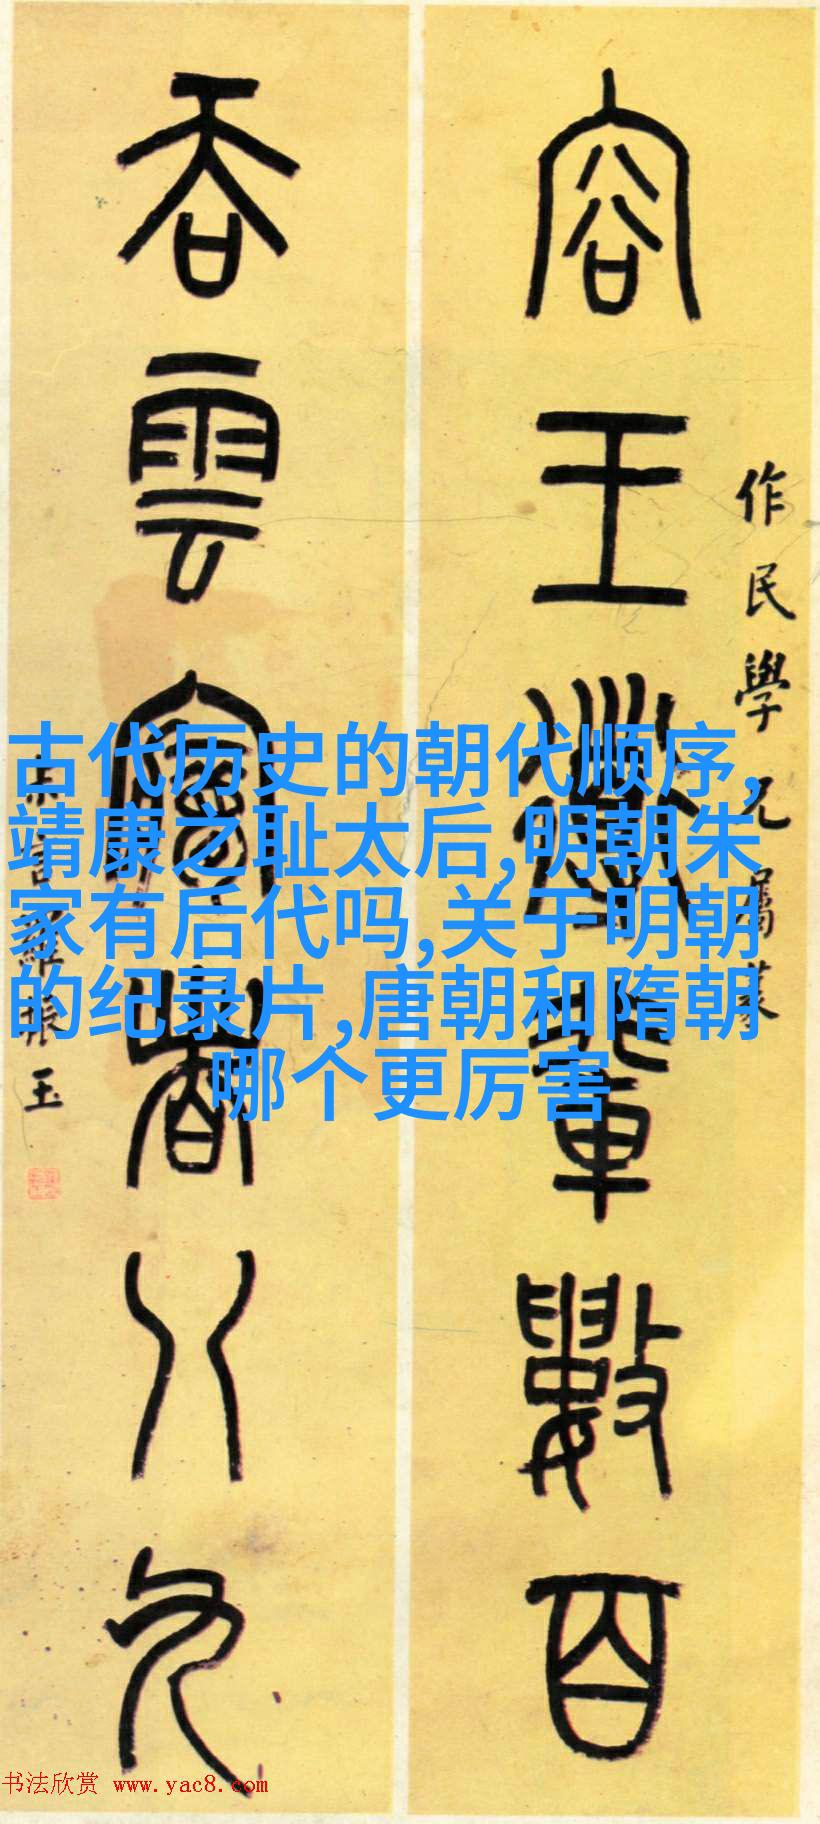 作民學兄屬篆
容王輩數百
吞雲夢者八九
羅振玉
古代历史的朝代顺序,
靖康之耻太后,明朝朱
家有后代吗,关于明朝
的纪录片,唐朝和隋朝
哪个更厉害
书法欣赏 www.yac8.com